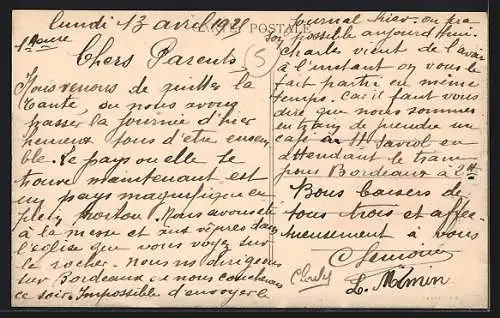 lundi 13 avril 1921
POSTALE
1 heure
Chers Parents
Nous venons de quitter la
tante où nous avons
passer la journée d'hier
heureux tous d'être ensem
ble. Le pays ou elle se
trouve maintenant est
un pays magnifique en
plein Nous avons été
à la messe et aux vêpres dans
l'église que vous voyez sur
le rocher. Nous nous dirigeons
sur Bordeaux ou nous coucherons
ce soir. Impossible d'envoyer le
journal hier. ou pas
possible aujourd'hui.
Charles vient de l'avoir
à l'instant on vous le
fait partir en même
temps. Car il faut vous
dire que nous sommes
en train de prendre un
café à St en
attendant le train
pour Bordeaux à 2H
Bons baisers de
tous trois et affec-
tueusement à vous